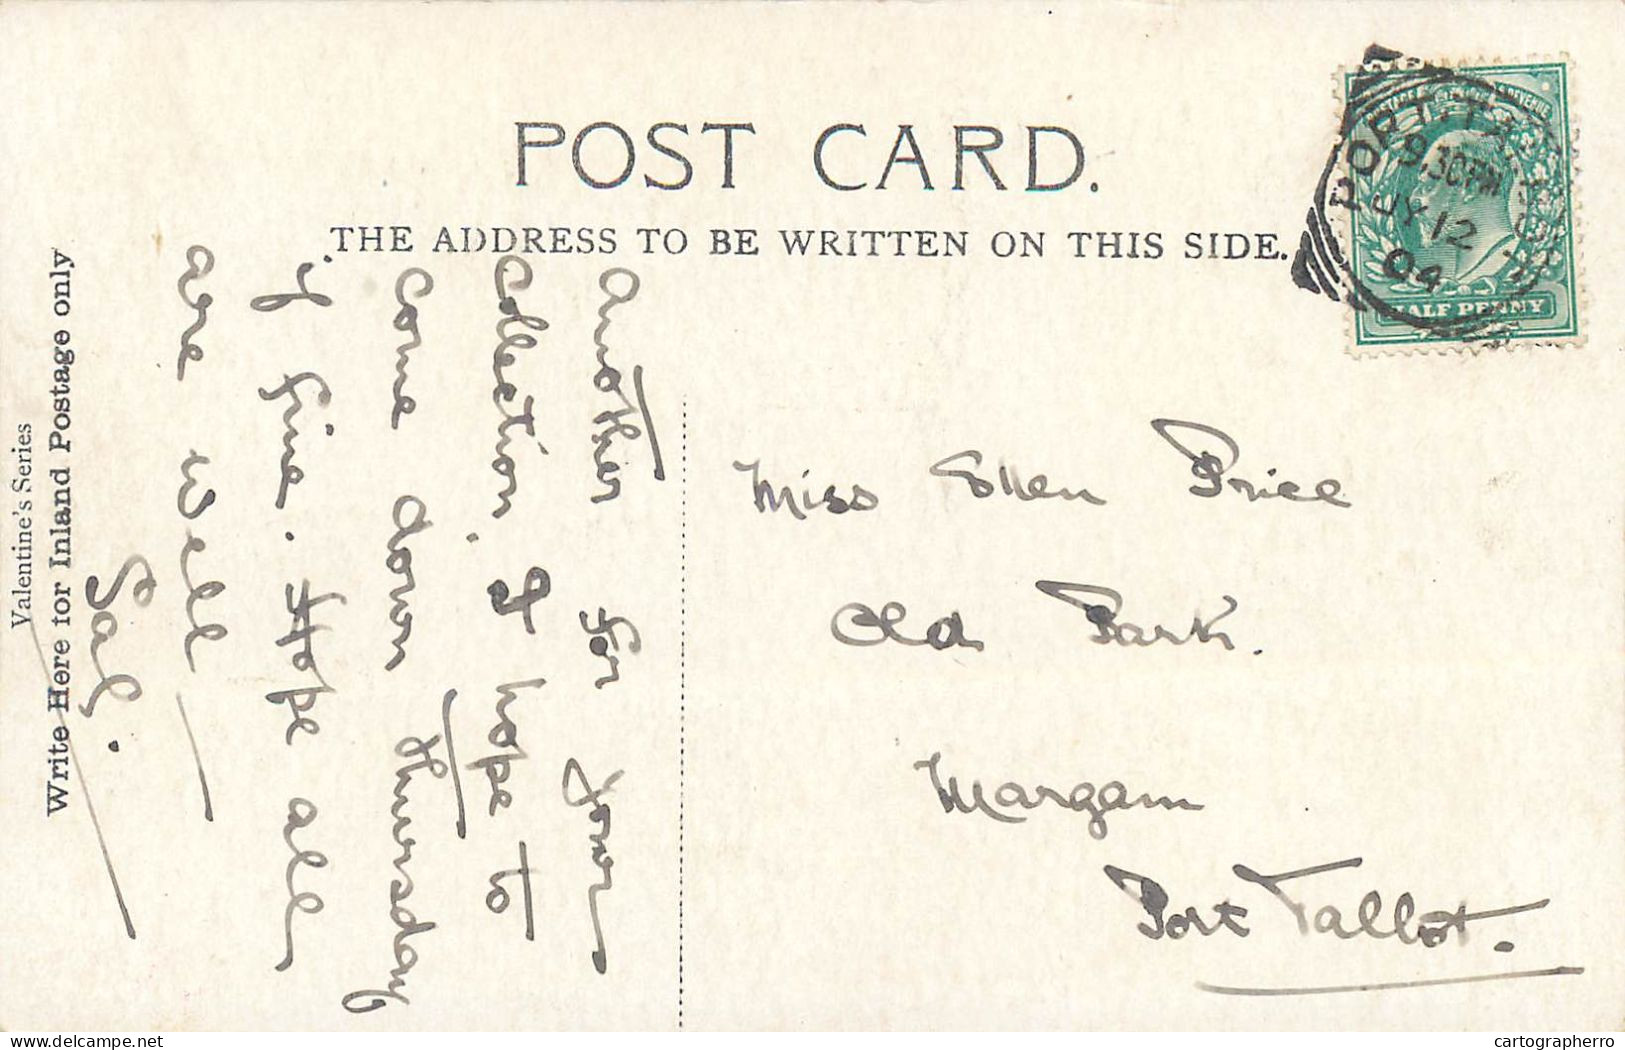 POST CARD.
THE ADDRESS TO BE WRITTEN ON THIS SIDE.
POSTAGE REVENUE
PORT-TALBOT
9.30PM
JY 12
04
HALF PENNY
Valentine's Series
Write Here for Inland Postage only
Another for your
collection. I hope to
come down Thursday
if fine. Hope all
are well
Sal.
Miss Ellen Price
Old Park.
Margam
Port Talbot.
hip.com
cartographerro